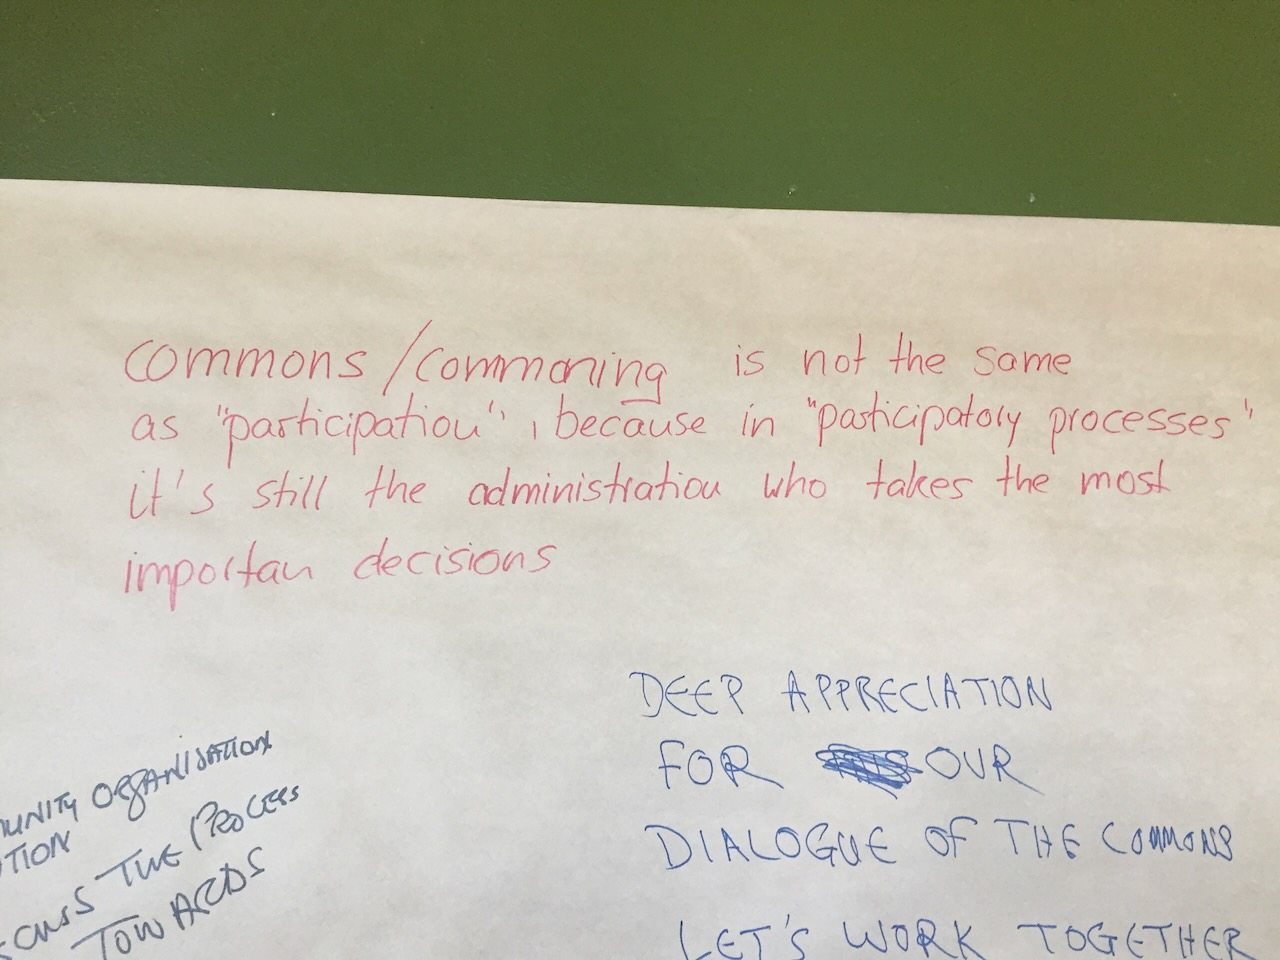 commons/commoning is not the same
as "participation", because in "participatory processes"
it's still the administration who takes the most
importan decisions
DEEP APPRECIATION
FOR OUR
DIALOGUE OF THE COMMONS
LET'S WORK TOGETHER
ORGANISATION
THE PROCESS
TOWARDS